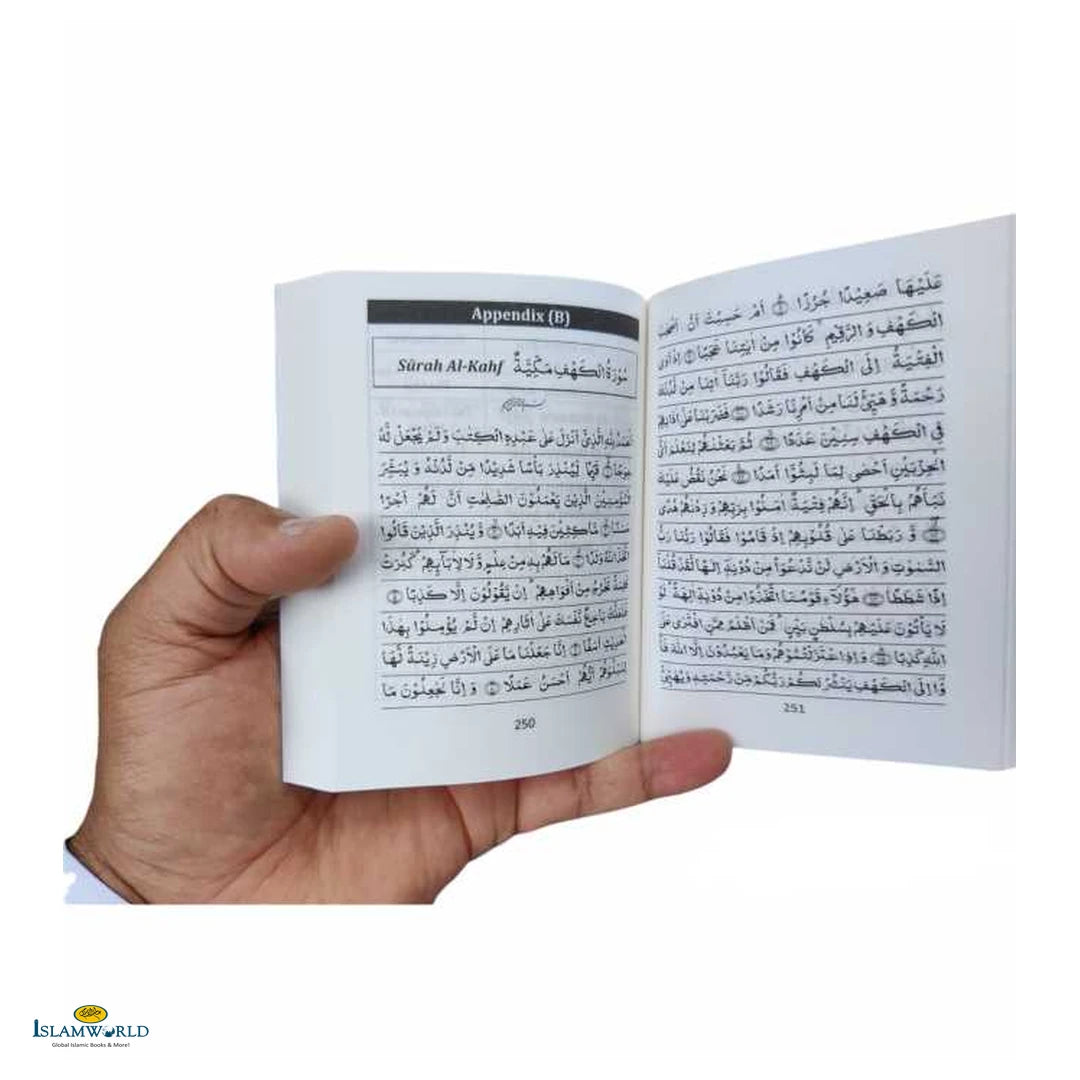 Appendix (B)
Sūrah Al-Kahf سُوْرَةُ الْكَهْفِ مَكِّيَّةٌ
اَلْحَمْدُ لِلّٰهِ الَّذِيْٓ اَنْزَلَ عَلٰى عَبْدِهِ الْكِتٰبَ وَلَمْ يَجْعَلْ لَّهٗ
عِوَجًا قَيِّمًا لِّيُنْذِرَ بَأْسًا شَدِيْدًا مِّنْ لَّدُنْهُ وَ يُبَشِّرَ
الْمُؤْمِنِيْنَ الَّذِيْنَ يَعْمَلُوْنَ الصّٰلِحٰتِ اَنَّ لَهُمْ اَجْرًا
حَسَنًا مَّاكِثِيْنَ فِيْهِ اَبَدًا وَّ يُنْذِرَ الَّذِيْنَ قَالُوا
اتَّخَذَ اللّٰهُ وَلَدًا مَا لَهُمْ بِهٖ مِنْ عِلْمٍ وَّ لَا لِاٰبَآئِهِمْ كَبُرَتْ
كَلِمَةً تَخْرُجُ مِنْ اَفْوَاهِهِمْ اِنْ يَّقُوْلُوْنَ اِلَّا كَذِبًا
فَلَعَلَّكَ بَاخِعٌ نَّفْسَكَ عَلٰٓى اٰثَارِهِمْ اِنْ لَّمْ يُؤْمِنُوْا بِهٰذَا
الْحَدِيْثِ اَسَفًا اِنَّا جَعَلْنَا مَا عَلَى الْاَرْضِ زِيْنَةً لَّهَا
لِنَبْلُوَهُمْ اَيُّهُمْ اَحْسَنُ عَمَلًا وَ اِنَّا لَجٰعِلُوْنَ مَا
250
عَلَيْهَا صَعِيْدًا جُرُزًا اَمْ حَسِبْتَ اَنَّ اَصْحٰبَ
الْكَهْفِ وَ الرَّقِيْمِ كَانُوْا مِنْ اٰيٰتِنَا عَجَبًا اِذْ اَوَى
الْفِتْيَةُ اِلَى الْكَهْفِ فَقَالُوْا رَبَّنَآ اٰتِنَا مِنْ لَّدُنْكَ
رَحْمَةً وَّ هَيِّئْ لَنَا مِنْ اَمْرِنَا رَشَدًا فَضَرَبْنَا عَلٰٓى اٰذَانِهِمْ
فِي الْكَهْفِ سِنِيْنَ عَدَدًا ثُمَّ بَعَثْنٰهُمْ لِنَعْلَمَ اَيُّ
الْحِزْبَيْنِ اَحْصٰى لِمَا لَبِثُوْٓا اَمَدًا نَحْنُ نَقُصُّ عَلَيْكَ
نَبَاَهُمْ بِالْحَقِّ اِنَّهُمْ فِتْيَةٌ اٰمَنُوْا بِرَبِّهِمْ وَ زِدْنٰهُمْ هُدًى
وَّ رَبَطْنَا عَلٰى قُلُوْبِهِمْ اِذْ قَامُوْا فَقَالُوْا رَبُّنَا رَبُّ
السَّمٰوٰتِ وَ الْاَرْضِ لَنْ نَّدْعُوَا۟ مِنْ دُوْنِهٖٓ اِلٰهًا لَّقَدْ قُلْنَآ
اِذًا شَطَطًا هٰٓؤُلَآءِ قَوْمُنَا اتَّخَذُوْا مِنْ دُوْنِهٖٓ اٰلِهَةً لَوْ
لَا يَاْتُوْنَ عَلَيْهِمْ بِسُلْطٰنٍ بَيِّنٍ فَمَنْ اَظْلَمُ مِمَّنِ افْتَرٰى عَلَى
اللّٰهِ كَذِبًا وَ اِذِ اعْتَزَلْتُمُوْهُمْ وَمَا يَعْبُدُوْنَ اِلَّا اللّٰهَ فَاْ
وٗٓا اِلَى الْكَهْفِ يَنْشُرْ لَكُمْ رَبُّكُمْ مِّنْ رَّحْمَتِهٖ وَ يُهَيِّئْ
251
ISLAMWORLD
Global Islamic Books & More!